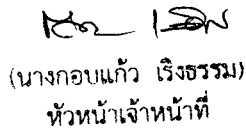 (นางกอบแก้ว เริงธรรม)
หัวหน้าเจ้าหน้าที่